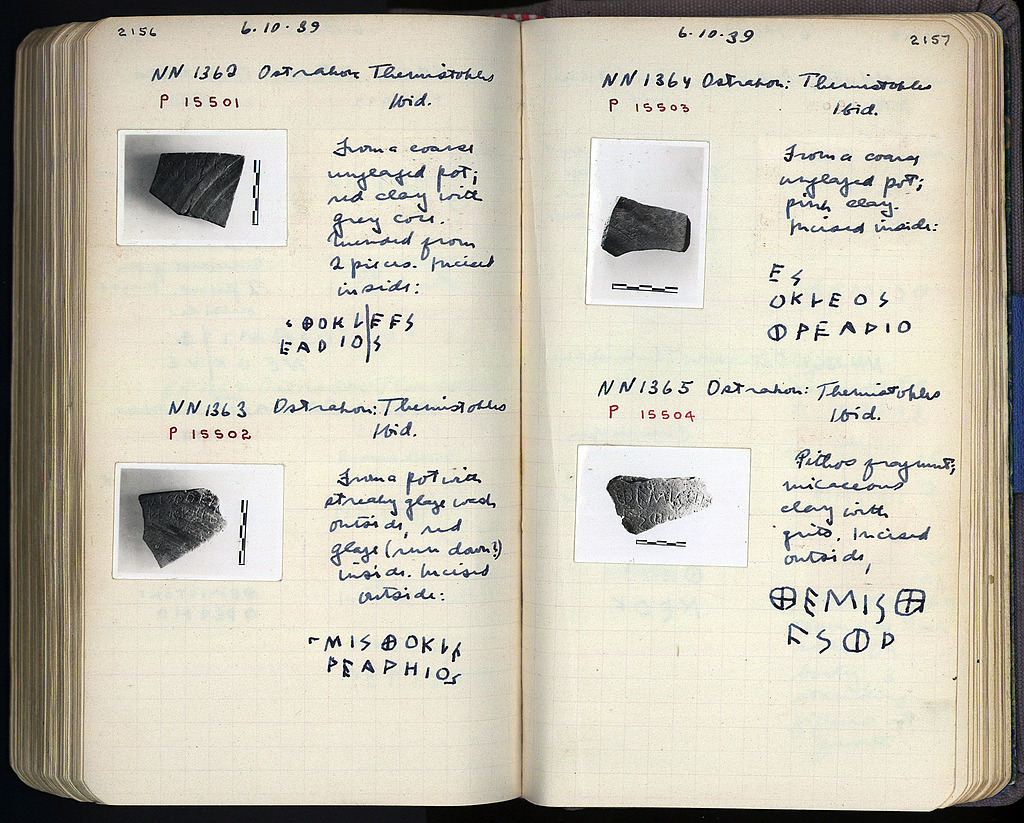 2156
6·10·39
NN 1362 Ostrakon: Themistokles
P 15501 Ibid.
From a coarse
unglazed pot;
red clay with
grey core.
Mended from
2 pieces. Incised
inside:
ΘOKLEES
EADIOS
NN 1363 Ostrakon: Themistokles
P 15502 Ibid.
From a pot with
streaky glaze wash
outside, red
glaze (run down?)
inside. Incised
outside:
MIS⊕OKLE
PEAPHIOS
6·10·39
2157
NN 1364 Ostrakon: Themistokles
P 15503 Ibid.
From a coarse
unglazed pot;
pink clay.
Incised inside:
ES
OKLEOS
ΦPEADIO
NN 1365 Ostrakon: Themistokles
P 15504 Ibid.
Pithos fragment;
micaceous
clay with
grits. Incised
outside,
⊕EMIS⊕
ESΦP